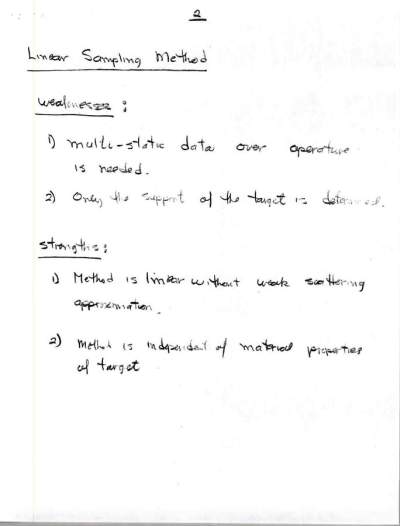 2
Linear Sampling Method
weaknesses :
1) multi-static data over aperature
is needed.
2) Only the support of the target is determined.
strengths :
1) Method is linear without weak scattering
approximation.
2) Method is independent of material properties
of target